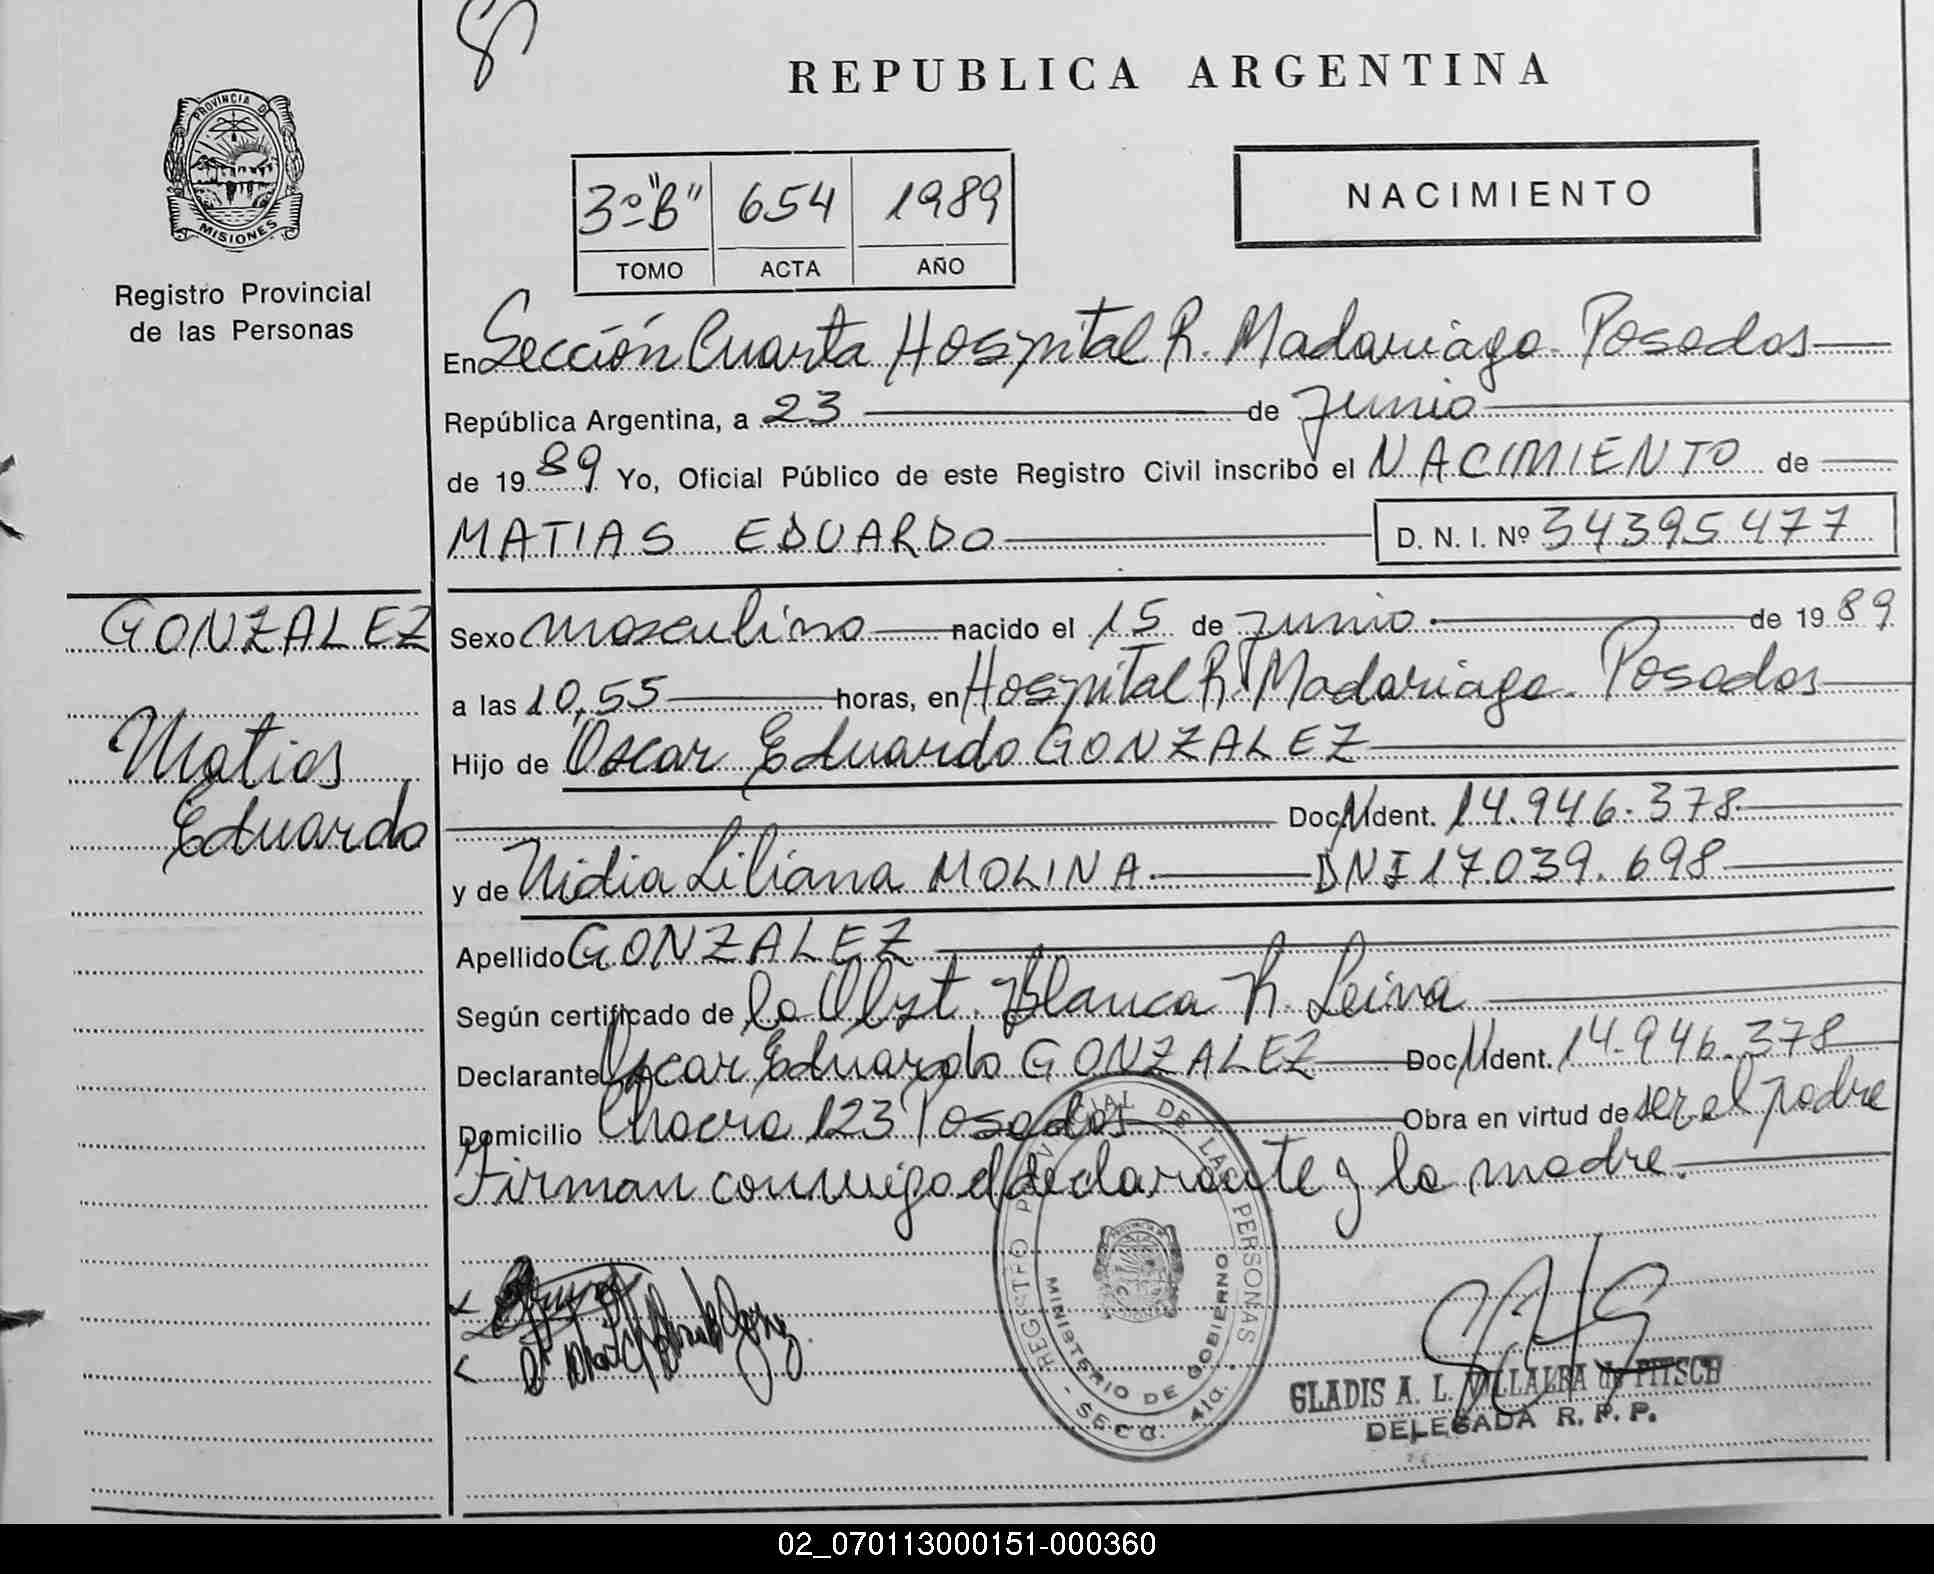 REPUBLICA ARGENTINA
PROVINCIA DE
MISIONES
Registro Provincial
de las Personas
3º "B" 654 1989
TOMO ACTA AÑO
NACIMIENTO
En Sección Cuarta Hospital R. Madariaga. Posadas
República Argentina, a 23 de Junio
de 1989 Yo, Oficial Público de este Registro Civil inscribo el NACIMIENTO de
MATIAS EDUARDO D. N. I. Nº 34395477
GONZALEZ
Matias
Eduardo
Sexo masculino nacido el 15 de junio de 1989
a las 10,55 horas, en Hospital R. Madariaga. Posadas
Hijo de Oscar Eduardo GONZALEZ
Doc. Ident. 14.946.378
y de Nidia Liliana MOLINA. DNI 17039.698
Apellido GONZALEZ
Según certificado de la Obst. Blanca R. Leiva
Declarante Oscar Eduardo GONZALEZ Doc. Ident. 14.946.378
Domicilio Chacra 123 Posadas Obra en virtud de ser el padre
Firman conmigo el declarante y la madre.
REGISTRO PROVINCIAL DE LAS PERSONAS
MINISTERIO DE GOBIERNO
- SECC. 4ta. -
GLADIS A. L. VILLALBA de PITSCH
DELEGADA R. P. P.
02_070113000151-000360